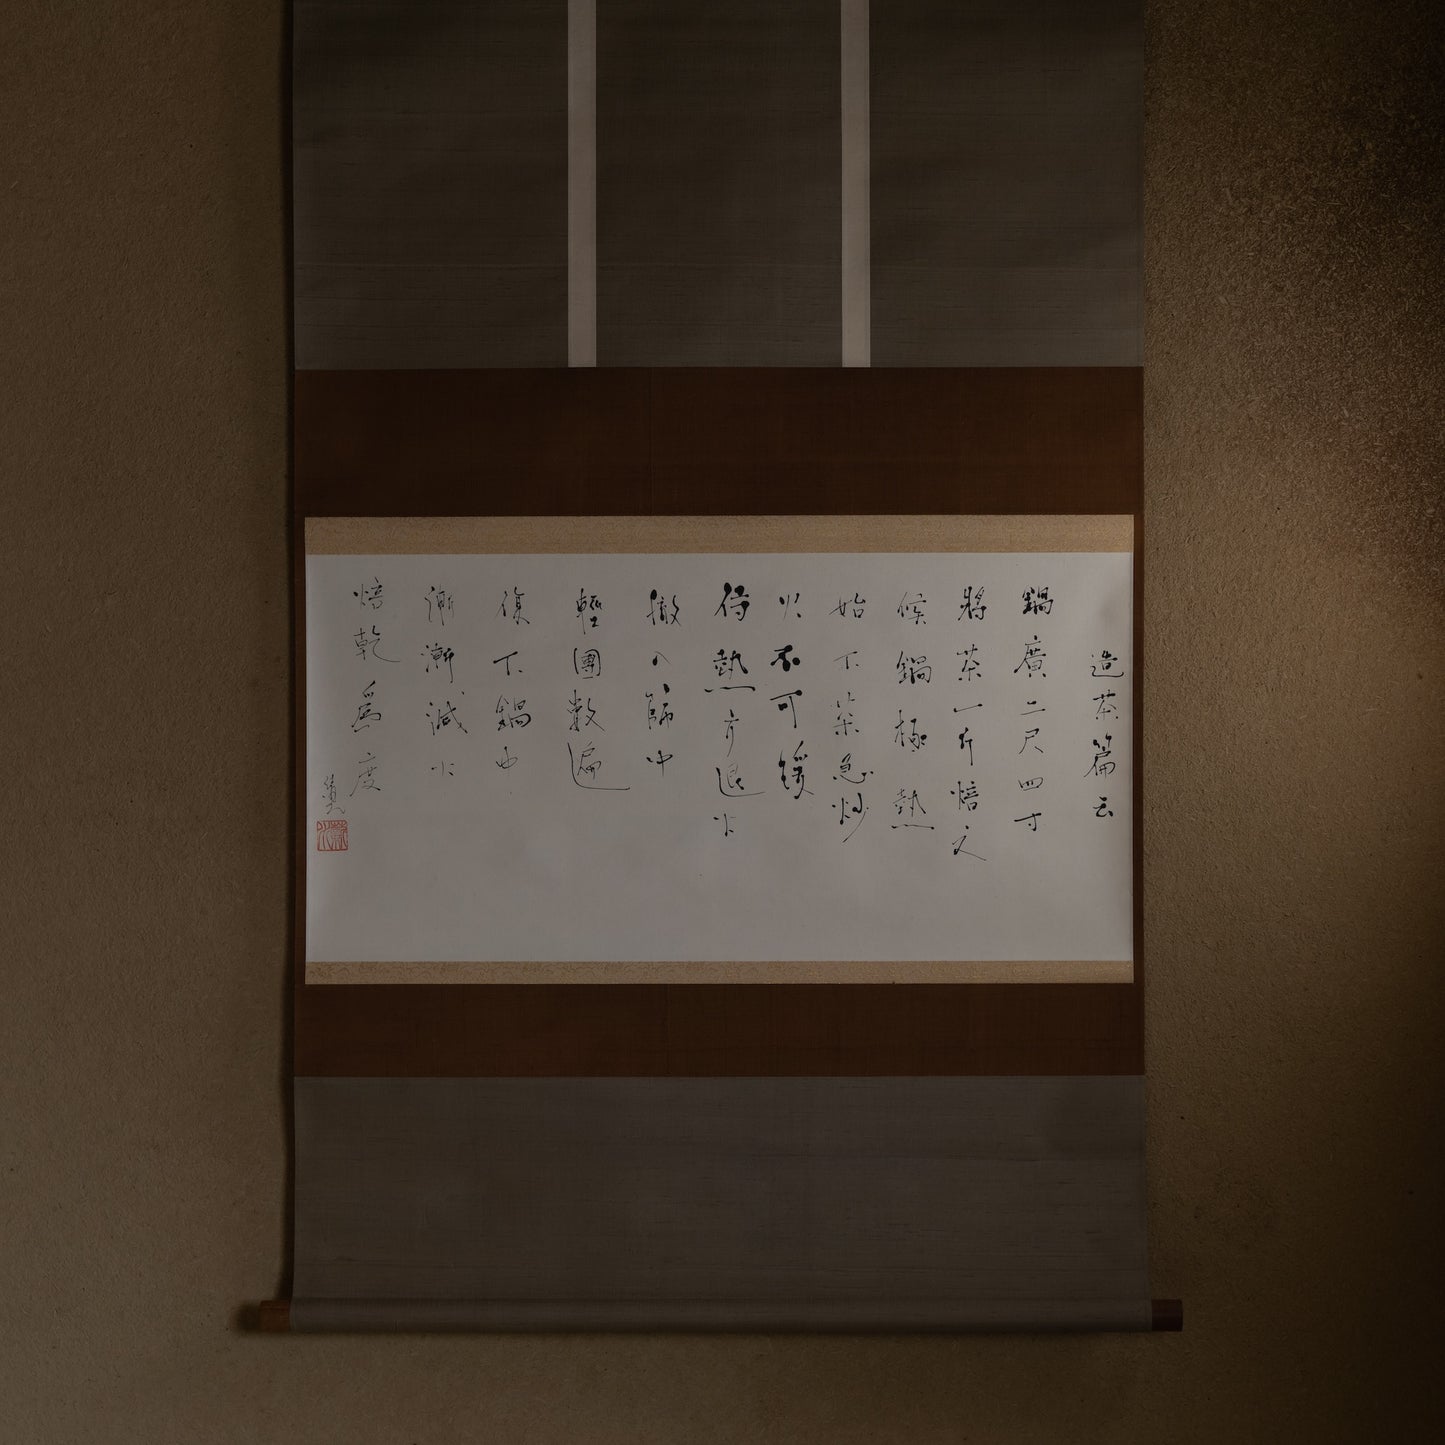 造茶篇云
鍋廣二尺四寸
將茶一斤焙之
候鍋極熱
始下茶急炒
火不可緩
待熟方退火
撤入篩中
輕團数遍
復下鍋中
漸漸減火
焙乾為度